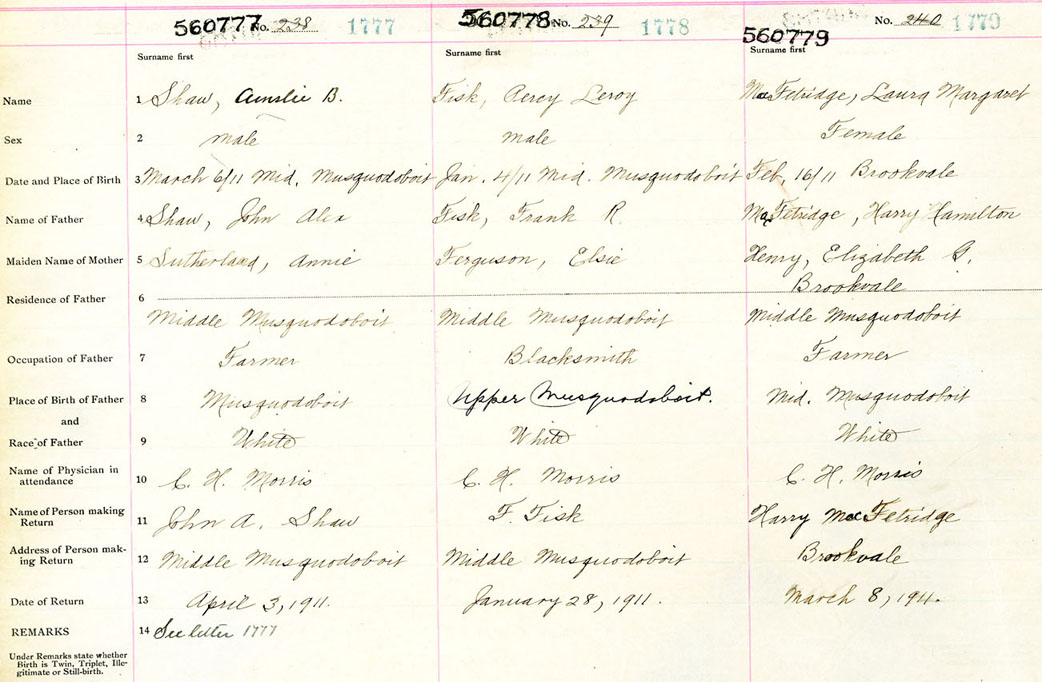 560777 No. 238 1777 560778 No. 239 1778 560779 No. 240 1779
Surname first Surname first Surname first
Name 1 Shaw, Ainslie B. Fisk, Percy Leroy MacFetridge, Laura Margaret
Sex 2 male male Female
Date and Place of Birth 3 March 6/11 Mid. Musquodoboit Jan. 4/11 Mid. Musquodoboit Feb. 16/11 Brookvale
Name of Father 4 Shaw, John Alex Fisk, Frank R. MacFetridge, Harry Hamilton
Maiden Name of Mother 5 Sutherland, Annie Ferguson, Elsie Henry, Elizabeth G.
Brookvale
Residence of Father 6
Middle Musquodoboit Middle Musquodoboit Middle Musquodoboit
Occupation of Father 7 Farmer Blacksmith Farmer
Place of Birth of Father 8 Musquodoboit Upper Musquodoboit. Mid. Musquodoboit
and
Race of Father 9 White White White
Name of Physician in
attendance 10 C. H. Morris C. H. Morris C. H. Morris
Name of Person making
Return 11 John A. Shaw F. Fisk Harry MacFetridge
Address of Person mak-
ing Return 12 Middle Musquodoboit Middle Musquodoboit Brookvale
Date of Return 13 April 3, 1911. January 28, 1911. March 8, 1911.
REMARKS 14 See letter 1777
Under Remarks state whether
Birth is Twin, Triplet, Ille-
gitimate or Still-birth.